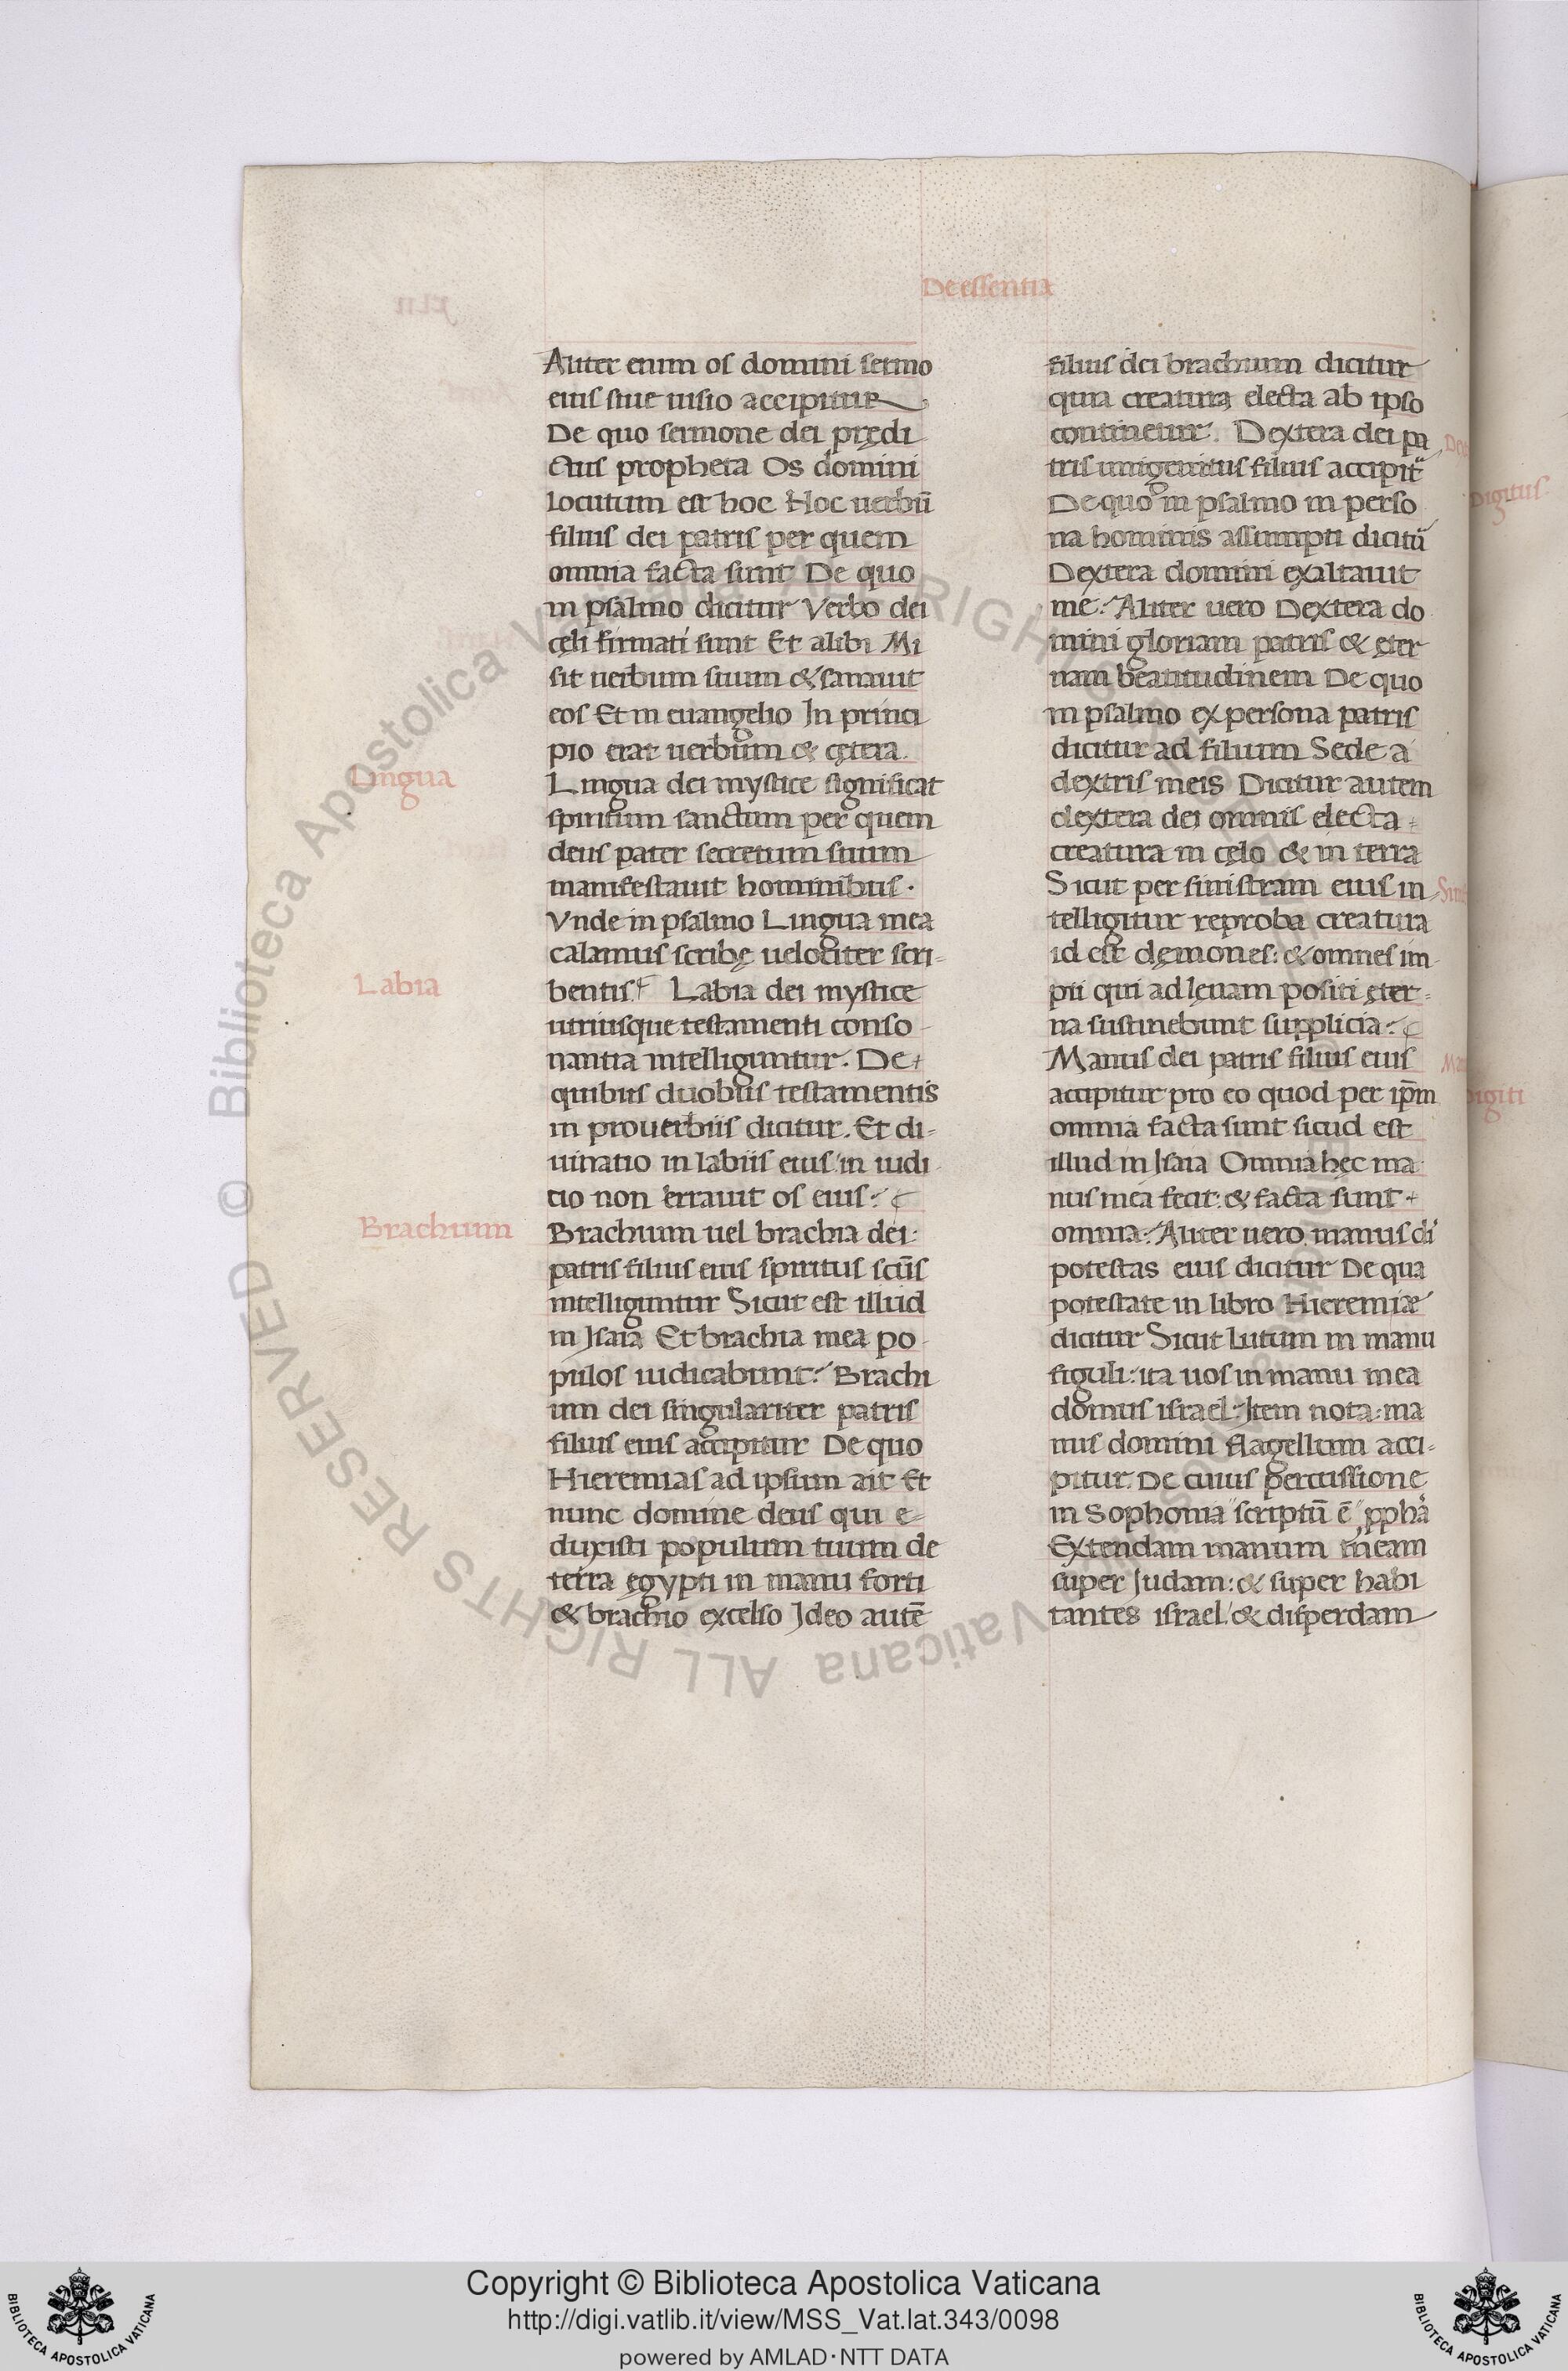 De essentia
Aliter enim os domini sermo
eius siue uisio accipitur
De quo sermone dei prędi
ctus propheta Os domini
locutum est hoc Hoc uerbū
filius dei patris per quem
omnia facta sunt De quo
in psalmo dicitur Verbo dei
cęli firmati sunt Et alibi Mi
sit uerbum suum & sanauit
eos Et in euangelio In princi
pio erat uerbum & cętera.
Lingua
Lingua dei mystice significat
spiritum sanctum per quem
deus pater secretum suum
manifestauit hominibus.
Vnde in psalmo Lingua mea
calamus scribę uelociter scri-
Labia
bentis. Labia dei mystice
utriusque testamenti conso-
nantia intelliguntur. De
quibus duobus testamentis
in prouerbiis dicitur. Et di-
uinatio in labiis eius in iudi-
tio non errauit os eius:
Brachium
Brachium uel brachia dei:
patris filius eius spiritus scūs
intelliguntur Sicut est illud
in Isaia Et brachia mea po-
pulos iudicabunt: Brachi
um dei singulariter patris
filius eius accipitur De quo
Hieremias ad ipsum ait Et
nunc domine deus qui e-
duxisti populum tuum de
terra ęgypti in manu forti
& brachio excelso Ideo autē
filius dei brachium dicitur
quia creatura electa ab ipso
continetur. Dextera dei pa
tris unigenitus filius accipit̄
De quo in psalmo in perso
na hominis assumpti dicitū
Dextera domini exaltauit
me: Aliter uero Dextera do
mini gloriam patris & ęter
nam beatitudinem De quo
in psalmo ex persona patris
dicitur ad filium Sede a
dextris meis Dicitur autem
dextera dei omnis electa
creatura in cęlo & in terra
Sicut per sinistram eius in
telligitur reproba creatura
id est dęmones: & omnes im-
pii qui ad lęuam positi ęter-
na sustinebunt supplicia:
Manus dei patris filius eius
accipitur pro eo quod per ip̄m
omnia facta sunt sicud est
illud in Isaia Omnia hęc ma-
nus mea fecit: & facta sunt
omnia: Aliter uero manus di
potestas eius dicitur De qua
potestate in libro Hieremiæ
dicitur Sicut lutum in manu
figuli: ita uos in manu mea
domus israel: Item nota: ma
nus domini flagellum acci-
pitur. De cuius percussione
in Sophonia scriptū ē ppha
Extendam manum meam
super Iudam: & super habi
tantes israel: & disperdam
Digitus
Digiti
Copyright © Biblioteca Apostolica Vaticana
http://digi.vatlib.it/view/MSS_Vat.lat.343/0098
powered by AMLAD·NTT DATA
BIBLIOTECA APOSTOLICA VATICANA
BIBLIOTECA APOSTOLICA VATICANA
© Biblioteca Apostolica Vaticana ALL RIGHTS RESERVED
© Biblioteca Apostolica Vaticana ALL RIGHTS RESERVED